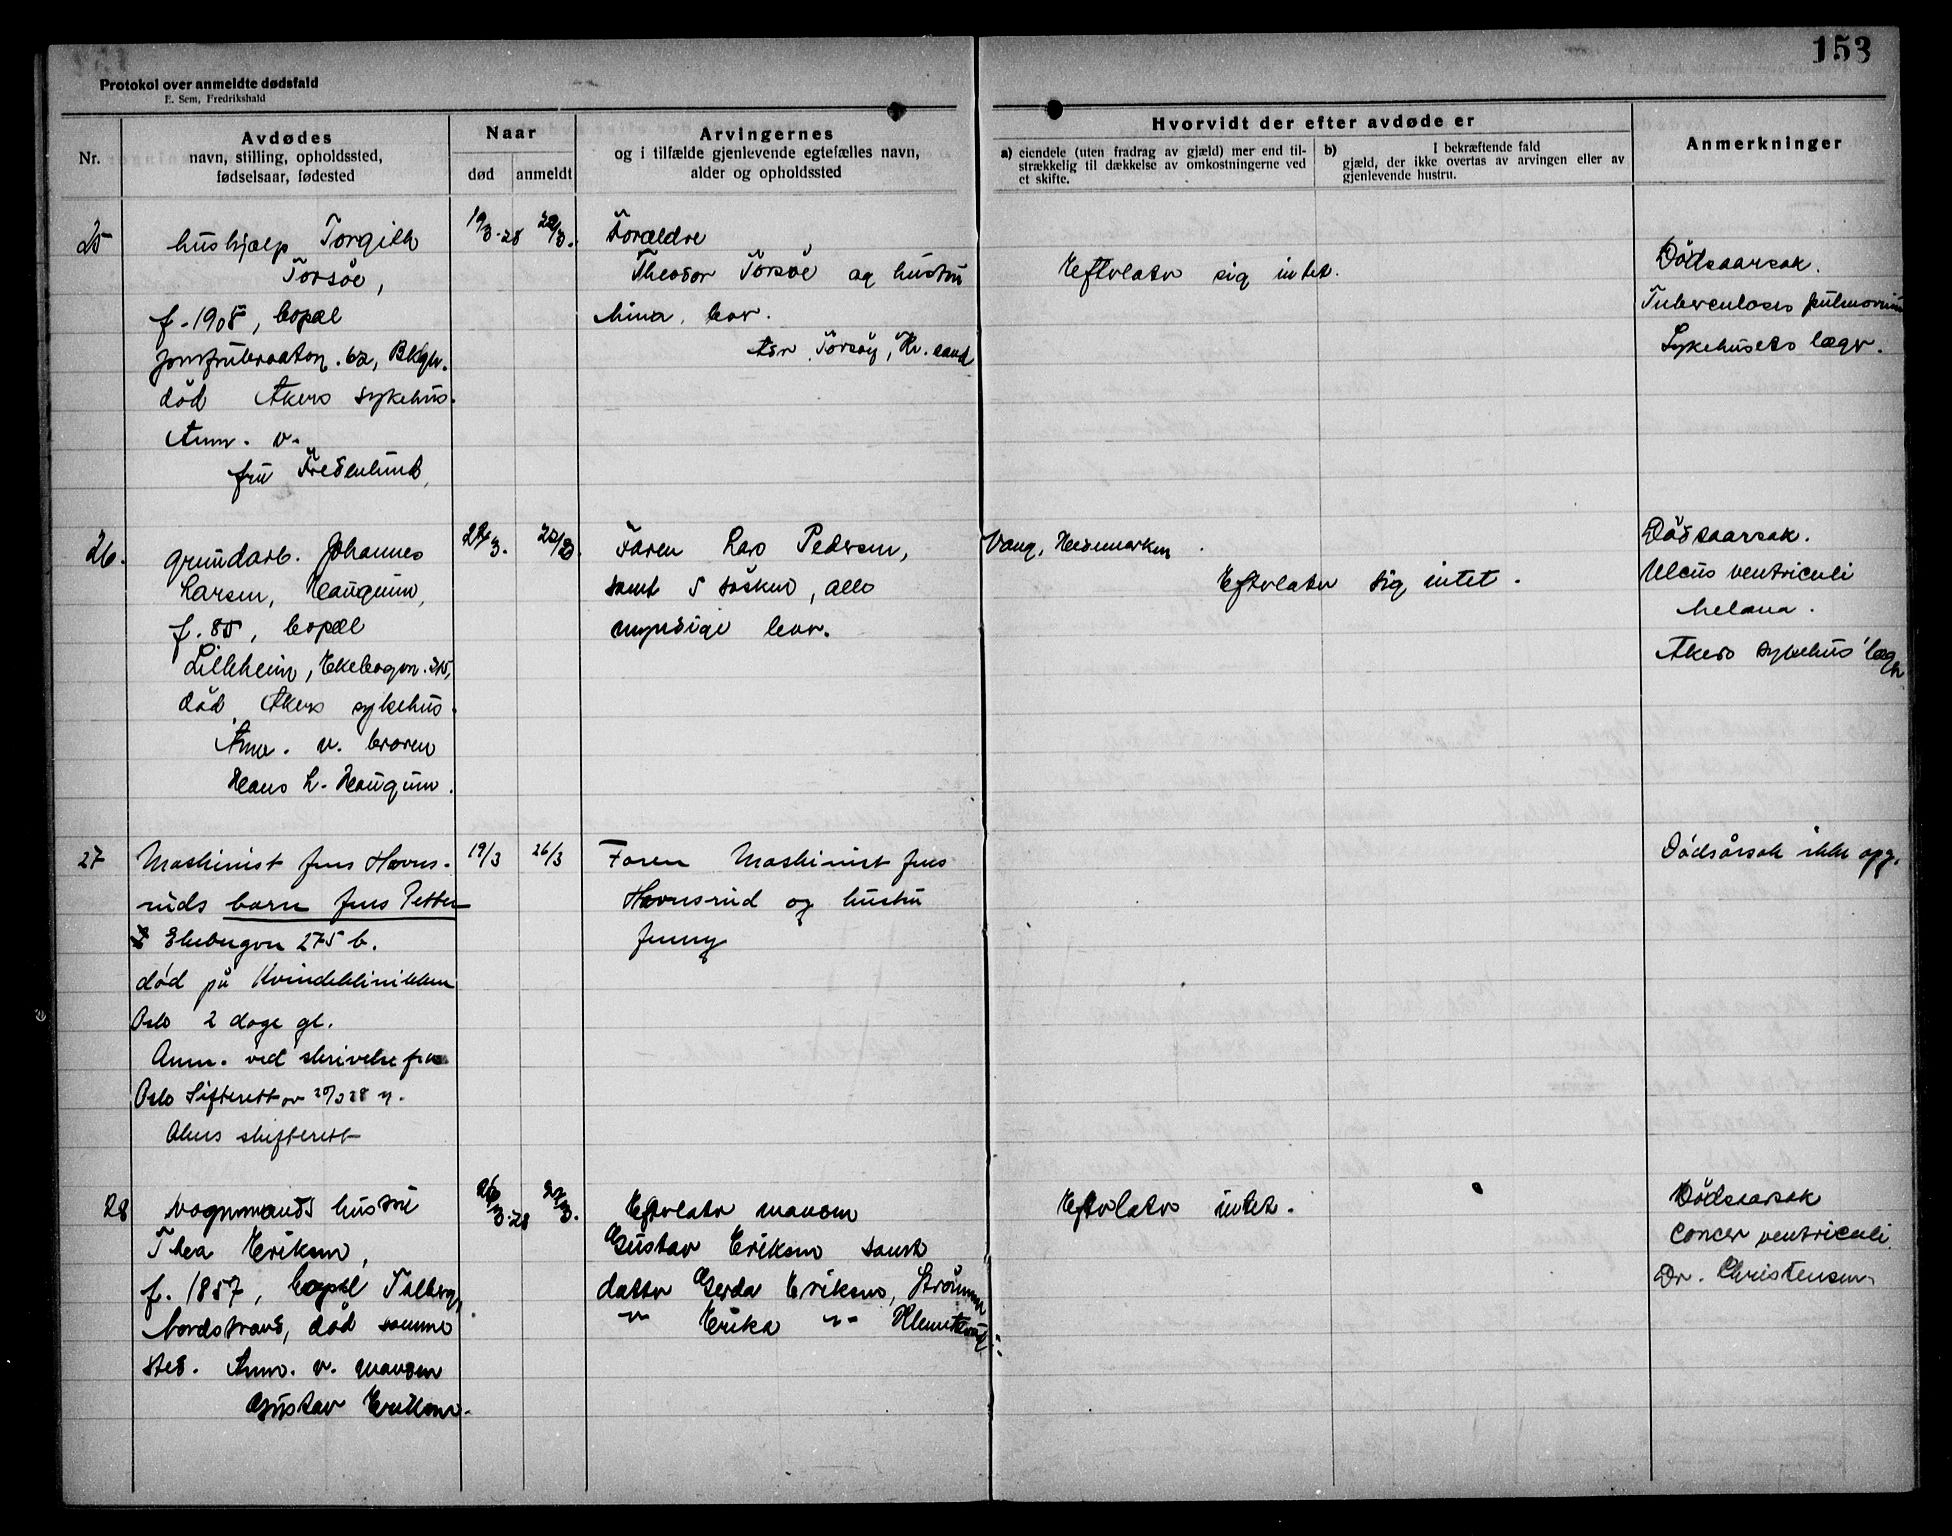 153
Protokol over anmeldte dødsfald
E. Sem, Fredrikshald
Nr.
Avdødes
navn, stilling, opholdssted,
fødselsaar, fødested
Naar
død
anmeldt
Arvingernes
og i tilfælde gjenlevende egtefælles navn,
alder og opholdssted
Hvorvidt der efter avdøde er
a) eiendele (uten fradrag av gjæld) mer end til-
strækkelig til dækkelse av omkostningerne ved
et skifte.
b) I bekræftende fald
gjæld, der ikke overtas av arvingen eller av
gjenlevende hustru.
Anmerkninger
25
hushjælp Torgith
Torsøe,
f. 1908, bopæl
Jomfrubraaten 62, Bkgh.
død Akers sykehus.
Anm. v.
fru Fredenlund,
19/3-28
22/3.
Forældre
Theodor Torsøe og hustru
Mina, bor.
Torsøy, Kr. sand
Efterlater sig intet.
Dødsaarsak.
Tuberculosis pulmonum
Sykehusets læge.
26.
grundarb. Johannes
Larsen, Haugum,
f. 85, bopæl
Lilleheim, Ekebergvn. 315,
død Akers sykehus.
Anm. v. broren
Hans L. Haugum.
22/3.
Faren Lars Pedersen, Vang, Hedemarken
samt 5 søsken, alle
myndige bor.
Efterlater sig intet.
Dødsaarsak.
Ulcus ventriculi
Melæna.
Akers sykehus' læge
27
Maskinist Jens Havns-
ruds barn Jens Petter
Ekebergvn 275 b.
død på Kvindeklinikken
Oslo 2 dage gl.
Anm. ved skrivelse fra
Oslo Sifterett av 20/3 28 n.
Akers skifterett
19/3
26/3
Faren Maskinist Jens
Havnsrud og hustru
Jenny
Dødsårsak ikke opg.
28
Vognmands hustru
Thea Eriksen,
f. 1857, bopæl Solberg,
Nordstrand, død samme
sted. Anm. v. manden
Gustav Eriksen.
26/3-28
27/3.
Efterlater manden
Gustav Eriksen samt
datter Gerda Eriksen, Strømmen
" Erika "
Efterlater intet.
Dødsaarsak
Cancer ventriculi
Dr. Christensen